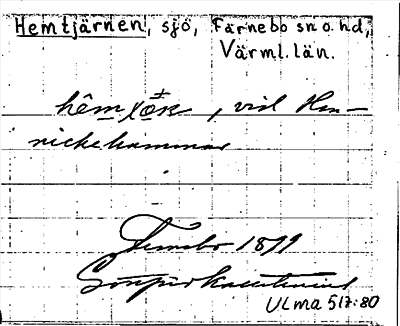 Hemtjärnen, sjö, Färnebo sn o. hd,
Värml. län.
hêm , vid Hen-
nickehammar
Fernebo 1899
ULMA 517:80